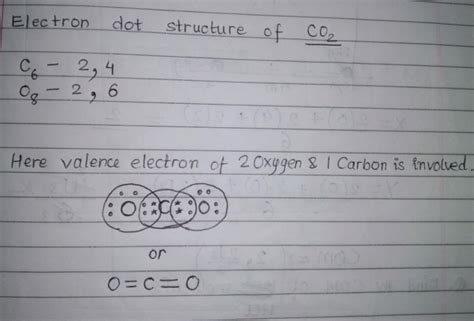 Electron dot structure of CO₂
C₆ - 2, 4
O₈ - 2, 6
Here valence electron of 2 Oxygen & 1 Carbon is involved.
O C O
or
O=C=O